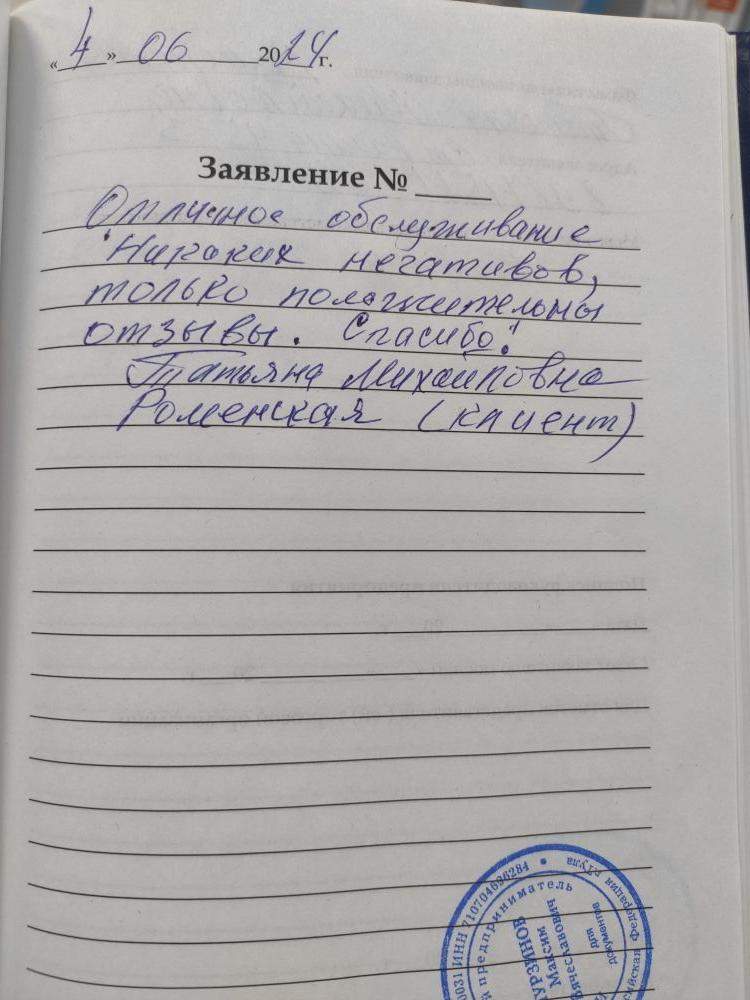 «4» 06 2024 г.
Заявление № ____
Отличное обслуживание
Никаких негативов,
только положительны
отзывы. Спасибо!
Татьяна Михайловна
Роменская (клиент)
0031 ИНН 710704696284
предприниматель
Максим
Вячеславович
для
документов
Федерация г.Тула